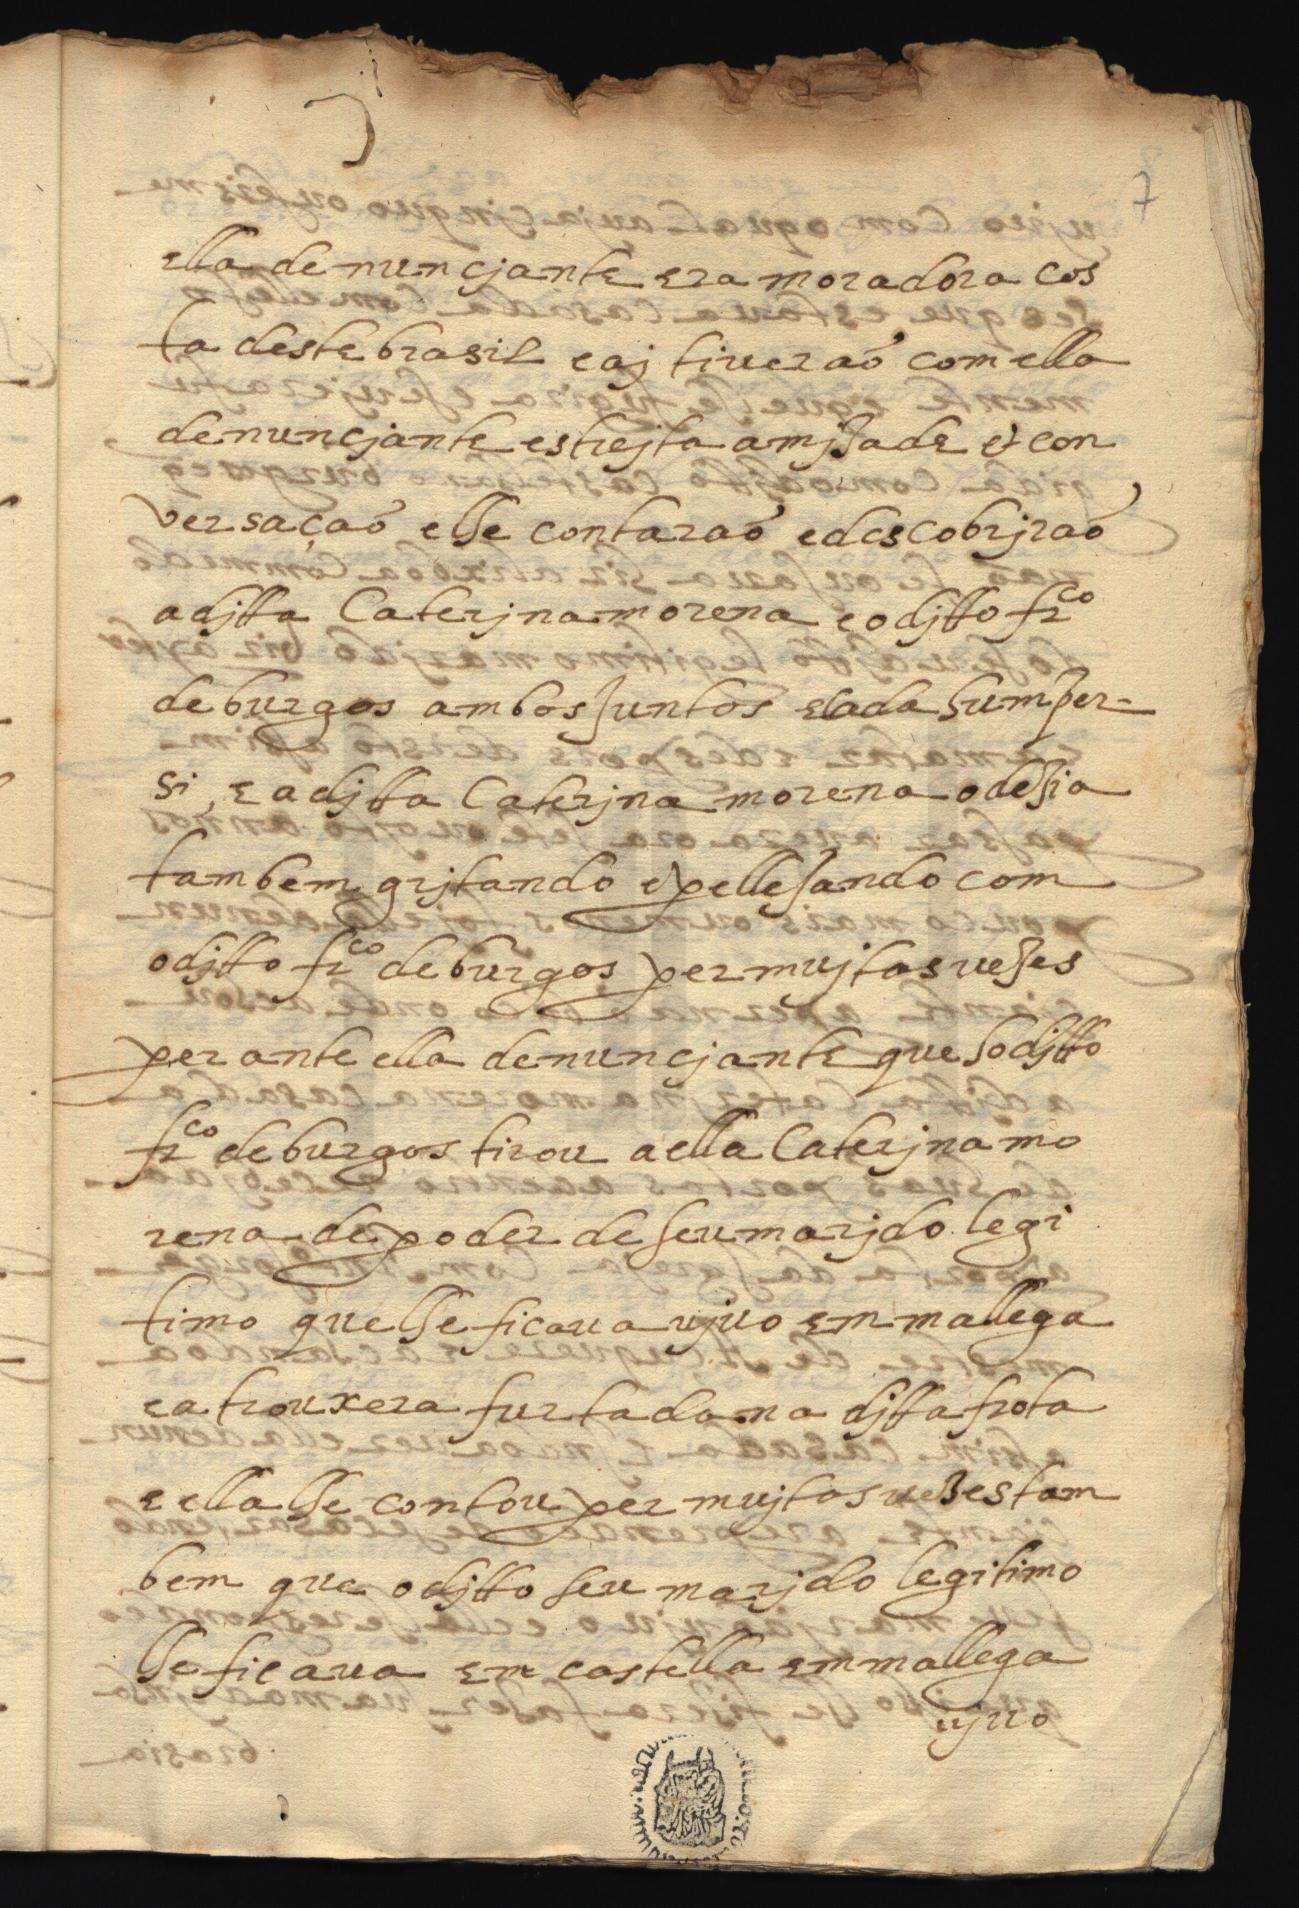 7
ella denuncjante era moradora cos
ta deste brasil e aj tiuerão com ella
denuncjante estrejta amjzade & con
versação e lhe contarão e descobrjrão
a djtta Caterjna morena e o djtto frco
de burgos ambos Juntos e cada hum per
si, e a djtta Caterjna morena o dezia
tambem grjtando e pellejando com
o djtto frco de burgos per mujtas uezes
perante ella denuncjante que ho djtto
frco de burgos tirou a ella Caterjna mo
rena de poder de seu marjdo legi
timo que lhe ficaua ujuo em mallega
e a trouxera furtada na djtta frota
e ella lhe contou per mujtas uezes tam
bem que o djtto seu marjdo legitimo
lhe ficaua em castella em mallega
ujuo